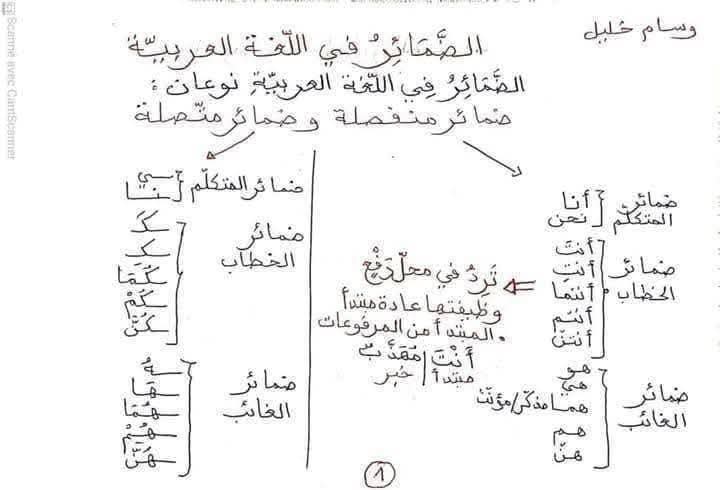 وسام خليل
الضَّمَائِرُ في اللّغة العربيّة
الضَّمَائِرُ فِي اللّغة العربيّة نوعان :
ضمائر منفصلة و ضمائر متّصلة
ضمائر المتكلّم
أنا
نحن
ضمائر الخطاب
أنتَ
أنتِ
أنتما
أنتم
أنتنّ
ضمائر الغائب
هو
هي
هما مذكّر/مؤنّث
هم
هنّ
تَرِدُ في محلّ رَفْعٍ
وظيفتها عادة مبتدأ
المبتدأ من المرفوعات .
أَنْتَ | مُهَذَّبٌ
مبتدأ | خبر
ضمائر المتكلّم
ـي
ـنا
ضمائر الخطاب
ـكَ
ـكِ
ـكُمَا
ـكُمْ
ـكُنَّ
ضمائر الغائب
ـهُ
ـهَا
ـهُمَا
ـهُمْ
ـهُنَّ
1
Scanné avec CamScanner